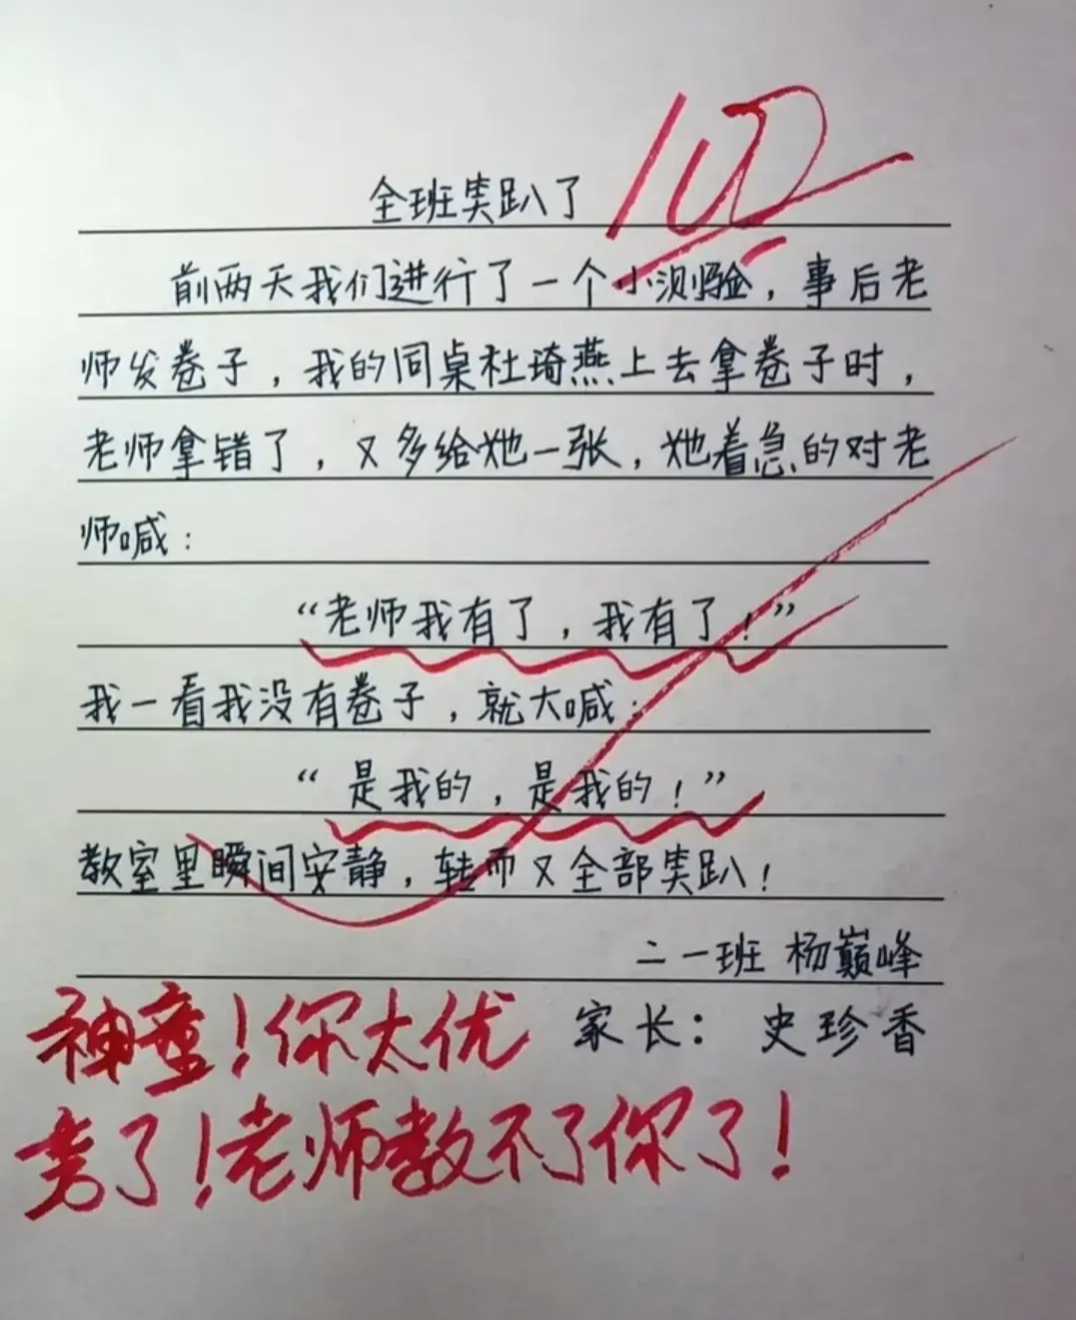 100
全班笑趴了
前两天我们进行了一个小测验，事后老
师发卷子，我的同桌杜琦燕上去拿卷子时，
老师拿错了，又多给她一张，她着急的对老
师喊：
“老师我有了，我有了！”
我一看我没有卷子，就大喊：
“是我的，是我的！”
教室里瞬间安静，转而又全部笑趴！
二一班 杨巅峰
家长：史珍香
神童！你太优
秀了！老师教不了你了！